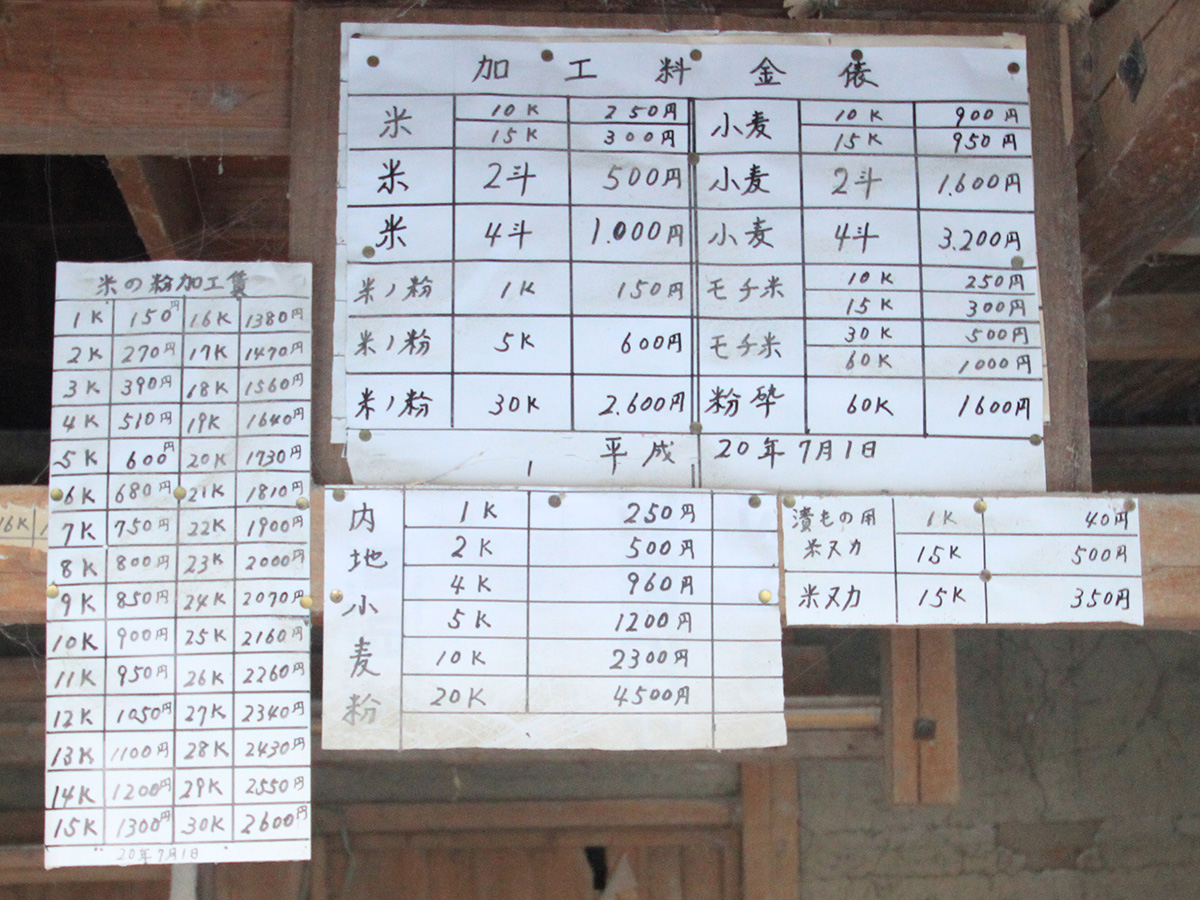 加工料金俵
米 10K 250円 小麦 10K 900円
15K 300円 15K 950円
米 2斗 500円 小麦 2斗 1.600円
米 4斗 1.000円 小麦 4斗 3.200円
米ノ粉 1K 150円 モチ米 10K 250円
15K 300円
米ノ粉 5K 600円 モチ米 30K 500円
60K 1000円
米ノ粉 30K 2.600円 粉砕 60K 1600円
平成 20年7月1日
米の粉加工賃
1K 150円 16K 1380円
2K 270円 17K 1470円
3K 390円 18K 1560円
4K 510円 19K 1640円
5K 600円 20K 1730円
6K 680円 21K 1810円
7K 750円 22K 1900円
8K 800円 23K 2000円
9K 850円 24K 2070円
10K 900円 25K 2160円
11K 950円 26K 2260円
12K 1050円 27K 2340円
13K 1100円 28K 2430円
14K 1200円 29K 2550円
15K 1300円 30K 2600円
20年7月1日
内地小麦粉
1K 250円
2K 500円
4K 960円
5K 1200円
10K 2300円
20K 4500円
漬もの用 1K 40円
米ヌカ 15K 500円
米ヌカ 15K 350円
16K